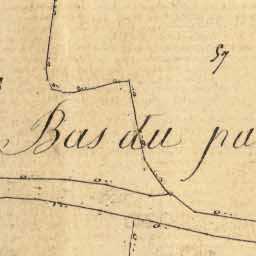 59
Bas du pa